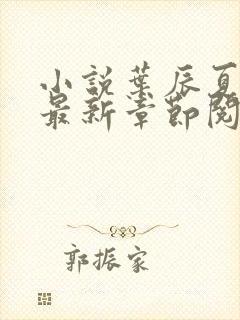 小説葉辰夏
最新章節閱
郭振家